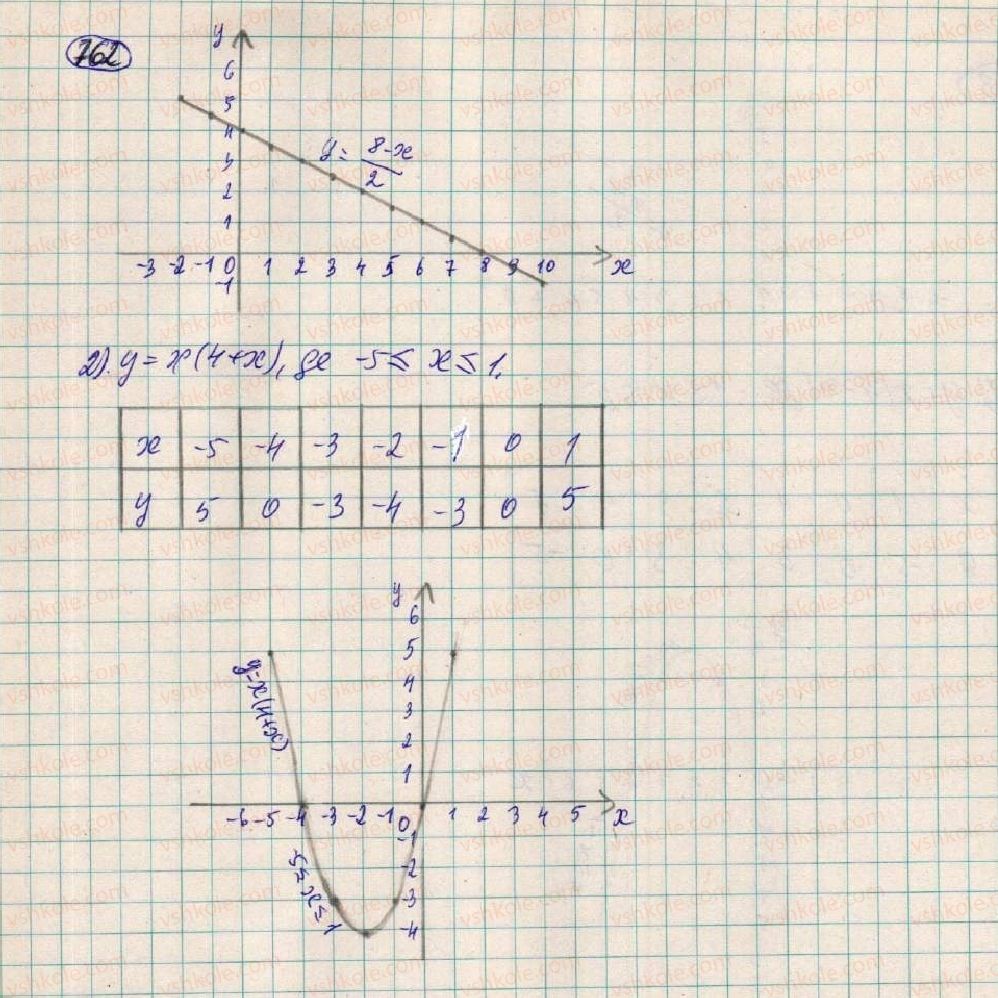 762
y
6
5
4
3
2
1
y = 8-x / 2
-3 -2 -1 0 1 2 3 4 5 6 7 8 9 10 x
-1
2). y = x(4+x), де -5 ≤ x ≤ 1.
x -5 -4 -3 -2 -1 0 1
y 5 0 -3 -4 -3 0 5
y
6
5
4
3
2
1
y=x(4+x)
-6 -5 -4 -3 -2 -1 0 1 2 3 4 5 x
-1
-2
-3
-4
-5 ≤ x ≤ 1